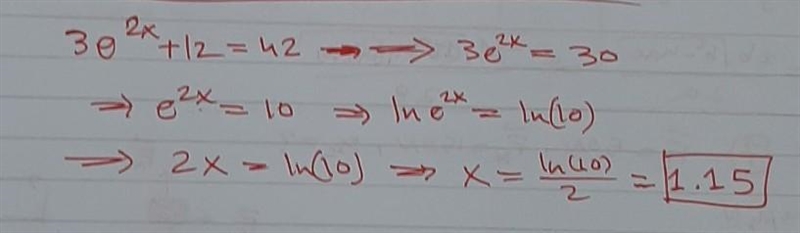 3e^{2x} + 12 = 42 → ⇒ 3e^{2x} = 30
⇒ e^{2x} = 10 ⇒ ln e^{2x} = ln(10)
⇒ 2x = ln(10) ⇒ x = ln(10)/2 = 1.15